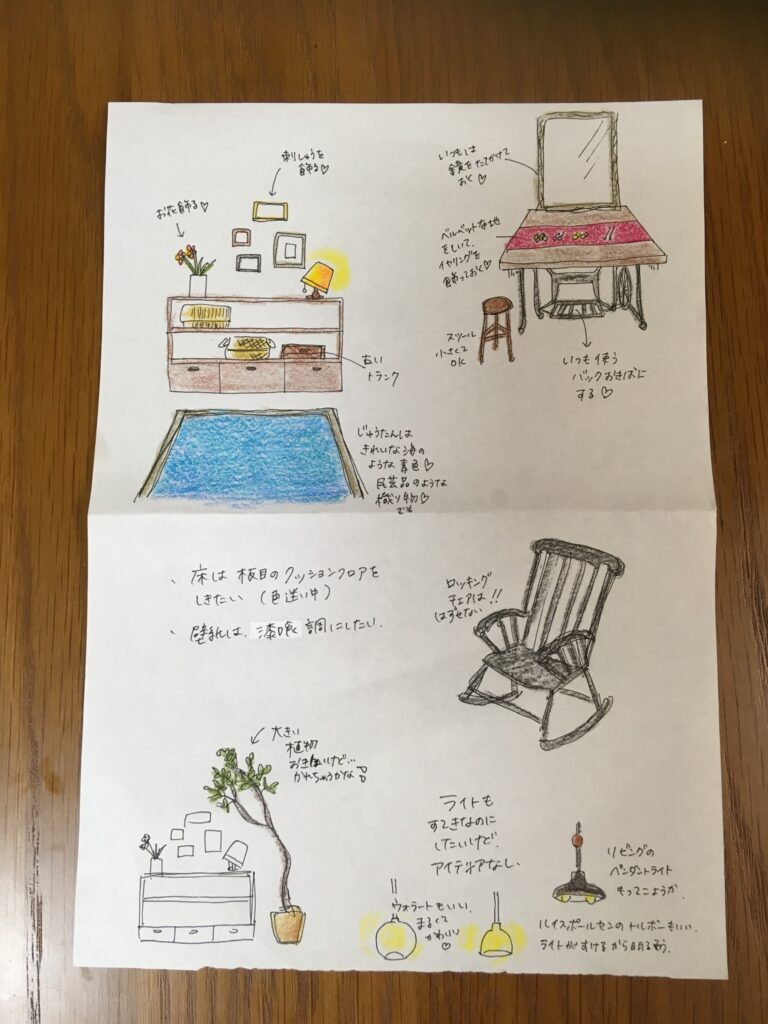 刺しゅうを
飾る♡
お花飾る♡
古い
トランク
いつもは
鏡をたてかけて
おく♡
ベルベットな地
をしいて、
イヤリングを
飾っておく♡
スツール
小さくて
OK
いつも使う
バックおきばに
する♡
じゅうたんは
きれいな海の
ような青色♡
民芸品のような
織り物♡
でも
、床は板目のクッションフロアを
しきたい (色迷い中)
、壁紙は、漆喰調にしたい.
ロッキング
チェアは!!
はずせない
大きい
植物
おきたいけど…
かれちゃうかな
ライトも
すてきなのに
したいけど、
アイディアなし.
ウォラートもいい.
まるくて
かわいい
♡
リビングの
ペンダントライト
もってこようか.
ルイスポールセンの トルボーもいい.
ライトがすけるから明るそう.